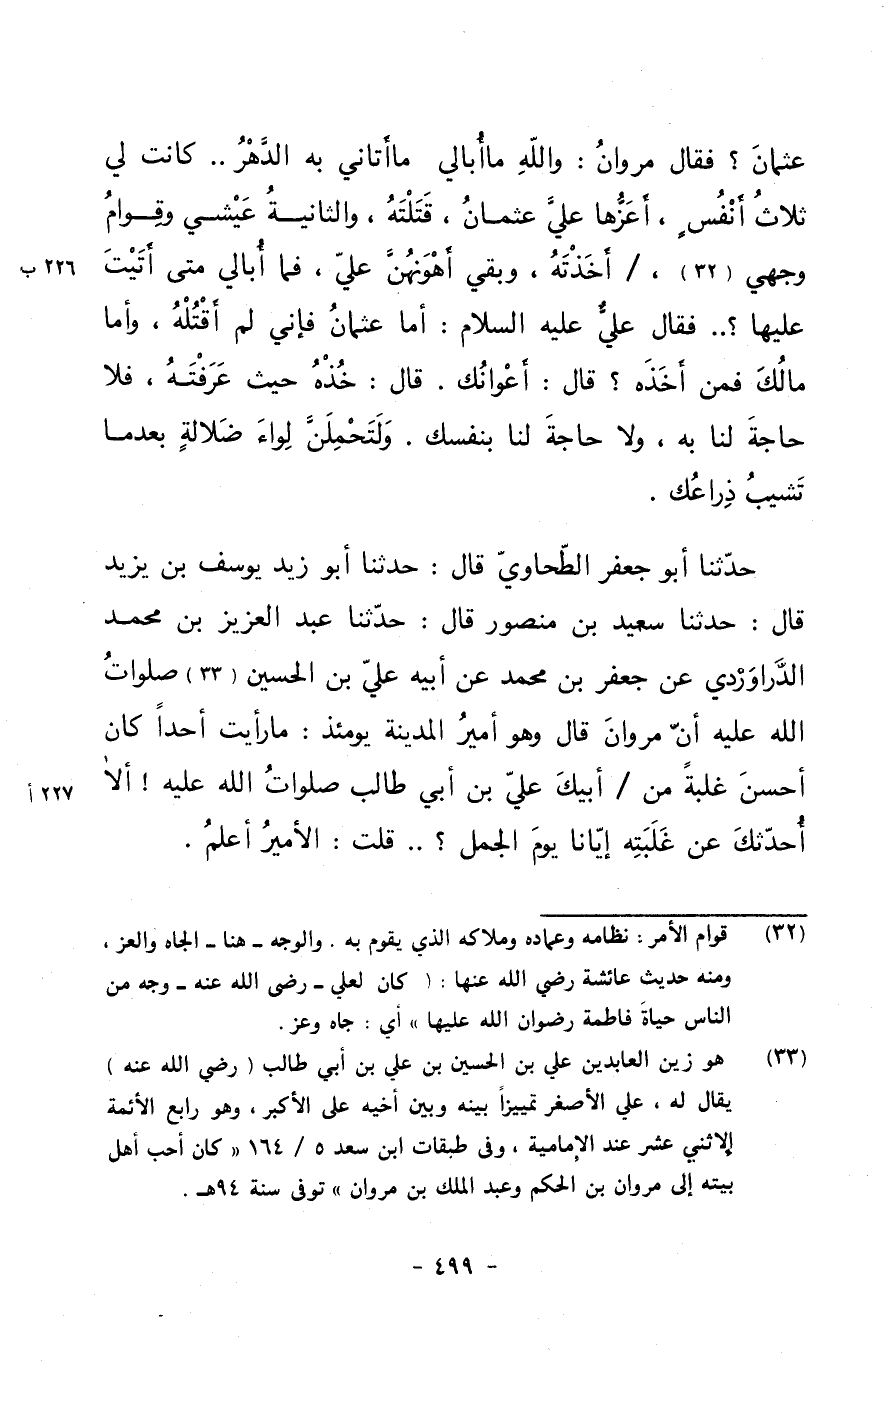 عثمانَ ؟ فقال مروانُ : واللّهِ ماأُبالي ماأَتاني به الدَّهْرُ .. كانت لي
ثلاثُ أَنْفُسٍ ، أَعَزُّها عليَّ عثمـانُ ، قَتَلْتَهُ ، والثانيـةُ عَيْشـي وقِـوامُ
وجهي ( ٣٢ ) ، / أَخَذْتَهُ ، وبقي أَهْوَنُهنَّ عليّ ، فما أُبالي متى أَتَيْتَ
٢٢٦ ب
عليها ؟.. فقال عليٌّ عليه السلام : أما عثمانُ فإني لم أَقْتُلْهُ ، وأما
مالُكَ فمن أَخَذَه ؟ قال : أَعْوانُك . قال : خُذْهُ حيث عَرَفْتَـهُ ، فلا
حاجةَ لنا به ، ولا حاجةَ لنا بنفسك . وَلَتَحْمِلَنَّ لِواءَ ضَلالةٍ بعدمـا
تَشيبُ ذِراعُك .
حدّثنا أبو جعفر الطّحاويّ قال : حدثنا أبو زيد يوسف بن يزيد
قال : حدثنا سعيد بن منصور قال : حدّثنا عبد العزيز بن محمـد
الدَّراوَرْدي عن جعفر بن محمد عن أبيه عليّ بن الحسين ( ٣٣ ) صلواتُ
الله عليه أنّ مروانَ قال وهو أميرُ المدينة يومئذ : مارأيت أحداً كان
أحسنَ غلبةً من / أبيكَ عليّ بن أبي طالب صلواتُ الله عليه ! ألا
٢٢٧ أ
أُحدّثكَ عن غَلَبَتِه إيّانا يومَ الجمل ؟ .. قلت : الأميرُ أعلمُ .
(٣٢) قوام الأمر : نظامه وعماده وملاكه الذي يقوم به . والوجه ـ هنا ـ الجاه والعز ،
ومنه حديث عائشة رضي الله عنها : ( كان لعلي ـ رضى الله عنه ـ وجه من
الناس حياةَ فاطمة رضوان الله عليها » أي : جاه وعز .
(٣٣) هو زين العابدين علي بن الحسين بن علي بن أبي طالب ( رضي الله عنه )
يقال له ، علي الأصغر تمييزاً بينه وبين أخيه على الأكبر ، وهو رابع الأئمة
الاثني عشر عند الإمامية ، وفى طبقات ابن سعد ٥ / ١٦٤ « كان أحب أهل
بيته إلى مروان بن الحكم وعبد الملك بن مروان » توفى سنة ٩٤هـ .
- ٤٩٩ -